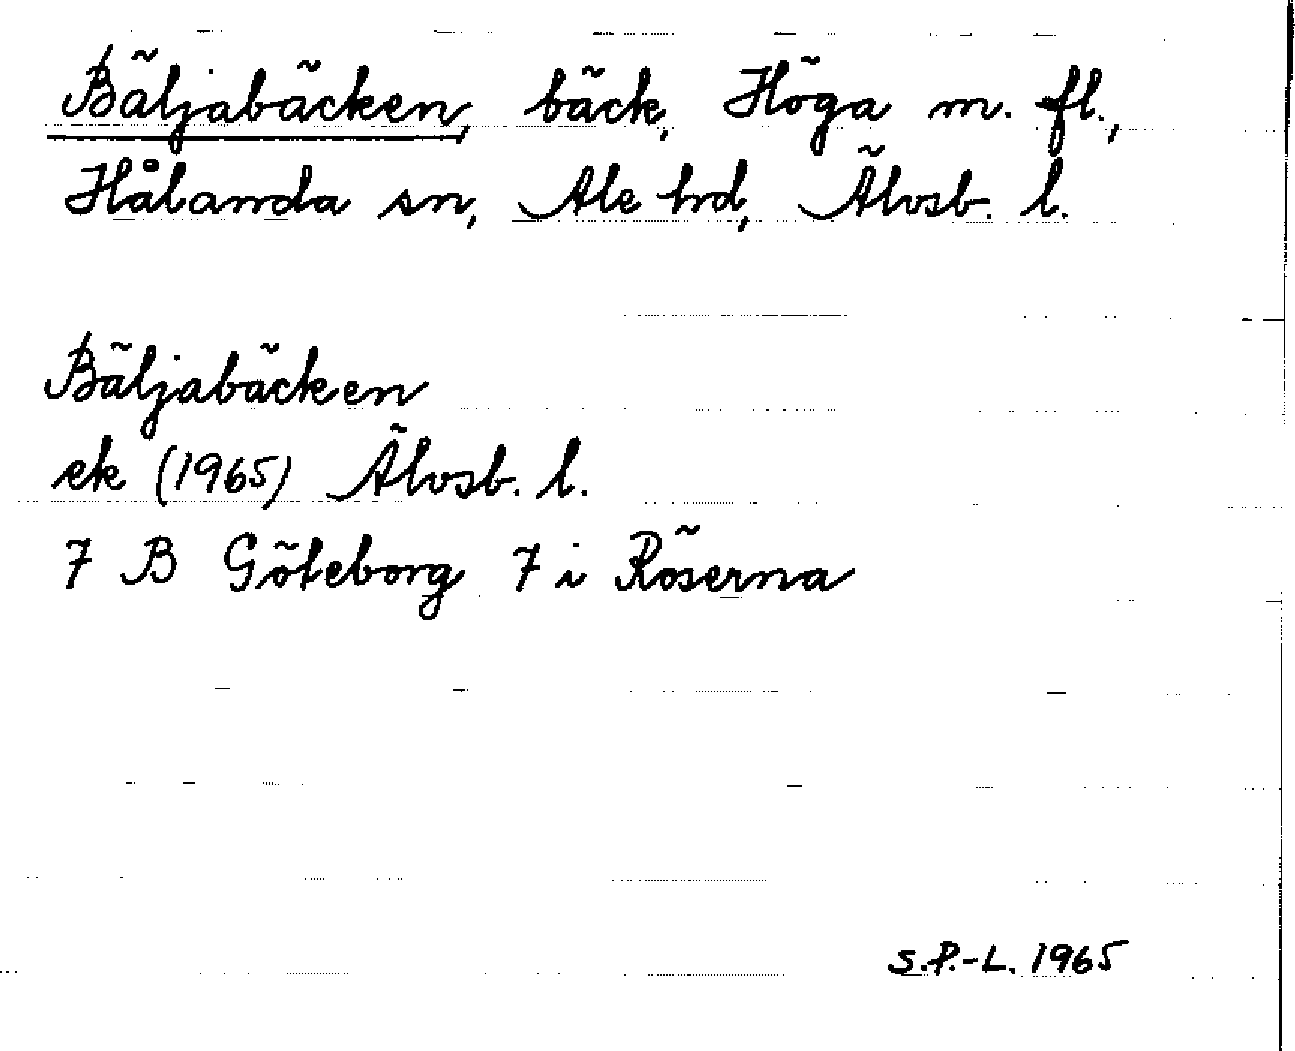 Bäljabäcken, bäck, Höga m. fl.,
Hålanda sn, Ale hd, Älvsb. l.
Bäljabäcken
ek (1965) Älvsb. l.
7 B Göteborg 7 i Röserna
S.P.-L. 1965